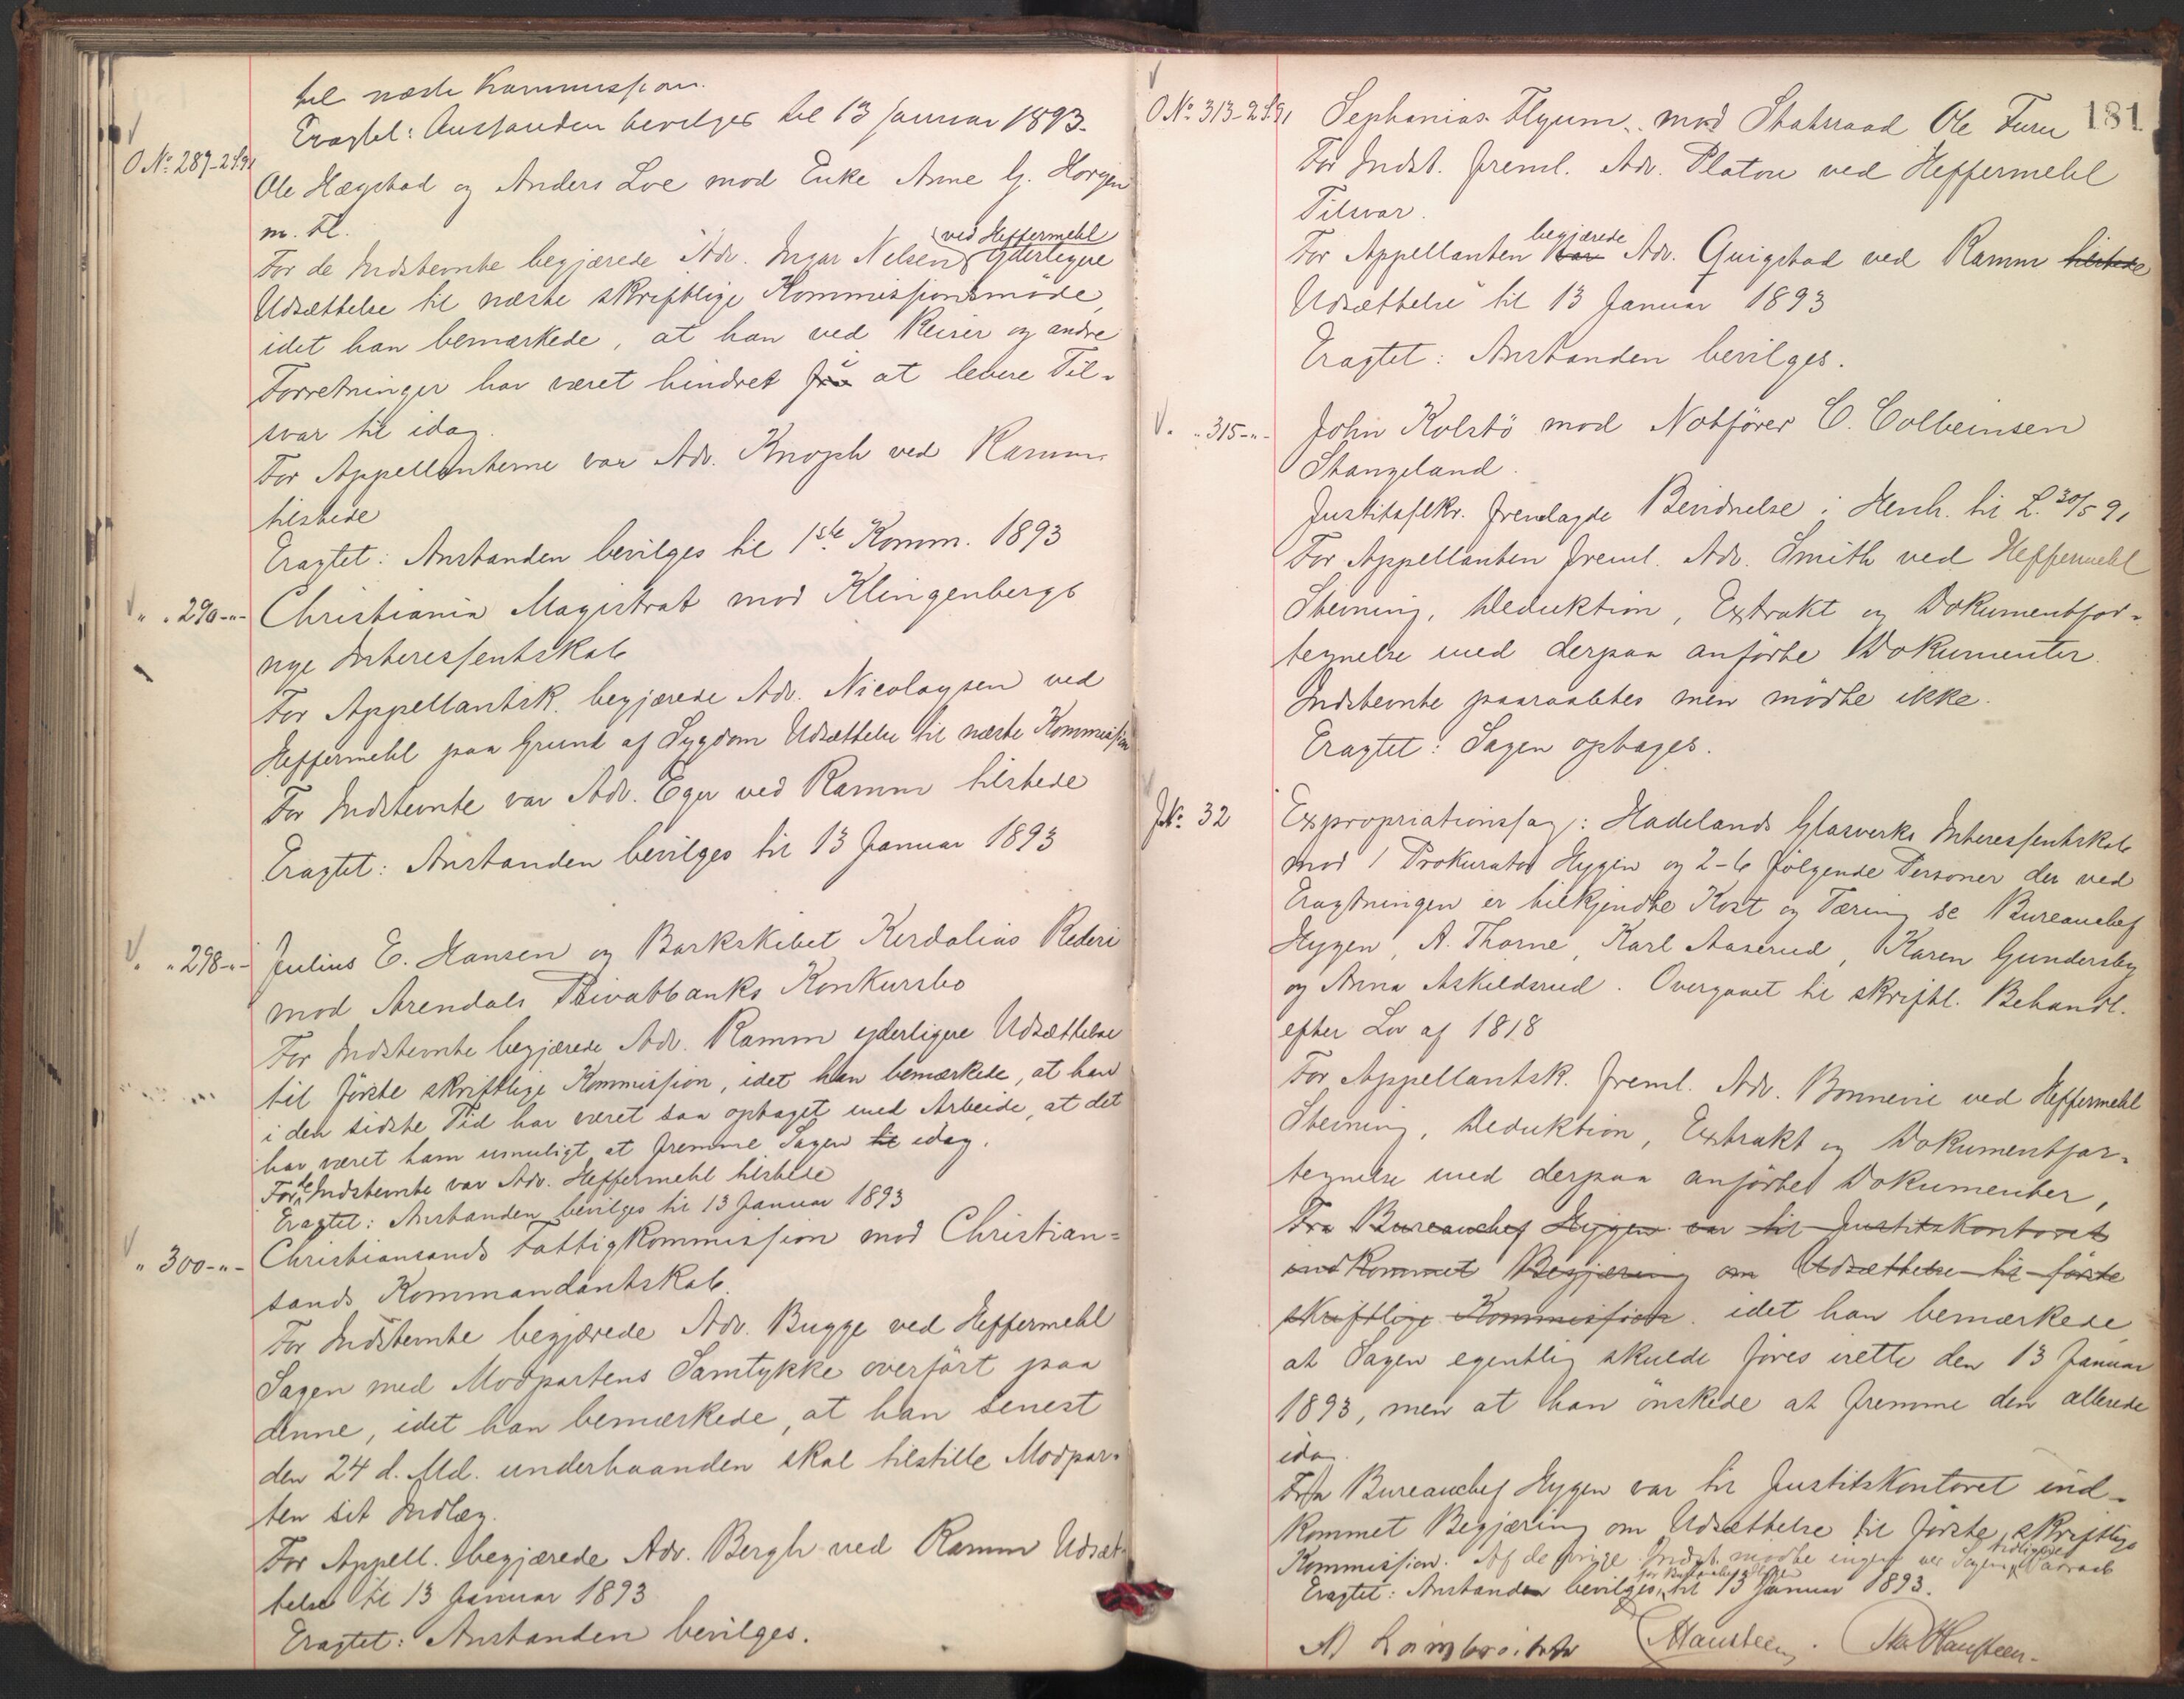 til næste Kommission.
Eragtet: Anstanden bevilges til 13 Januar 1893.
O No. 287-2/91
Ole Hægstad og Anders Loe mod Enke Anne G. Horgen
m. Fl.
For de Indstevnte begjærede Adv. Ingar Nelsen ved Heffermehl yderligere
Udsættelse til næste skriftlige Kommissionsmøde,
idet han bemærkede, at han ved Reiser og andre
Forretninger har været hindret i at levere Til-
svar til idag.
For Appellanterne var Adv. Knoph ved Ramm
tilstede
Eragtet: Anstanden bevilges til 1ste Komm. 1893
" " 290-"- Christiania Magistrat mod Klingenbergs
nye Interessentskab
For Appellantsk. begjærede Adv. Nicolaysen ved
Heffermehl paa Grund af Sygdom Udsættelse til næste Kommission
For Indstevnte var Adv. Eger ved Ramm tilstede
Eragtet: Anstanden bevilges til 13 Januar 1893
" 298-"- Julius E. Hansen og Barkskibet Kerdalias Rederi
mod Arendals Privatbanks Konkursbo
For Indstevnte begjærede Adv. Ramm yderligere Udsættelse
til første skriftlige Kommission, idet han bemærkede, at han
i den sidste Tid har været saa optaget med Arbeide, at det
har været ham umuligt at fremme Sagen til idag.
For de Indstevnte var Adv. Heffermehl tilstede
Eragtet: Anstanden bevilges til 13 Januar 1893
" 300-"- Christiansands Fattigkommission mod Christian=
sands Kommandantskab.
For Indstevnte begjærede Adv. Bugge ved Heffermehl
Sagen med Modpartens Samtykke overført paa
denne, idet han bemærkede, at han senest
den 24 d. Md. underhaanden skal tilstille Modpar-
ten sit Indlæg.
For Appell. begjærede Adv. Bergh ved Ramm Udsæt-
telse til 13 Januar 1893
Eragtet: Anstanden bevilges.
181
O No. 313-2/91 Sephanias Flyum mod Statsraad Ole Furu
For Indst. freml. Adv. Platou ved Heffermehl
Tilsvar.
For Appellanten var begjærede Adv. Quigstad ved Ramm tilstede
Udsættelse til 13 Januar 1893
Eragtet: Anstanden bevilges.
" 315-"- John Kolstö mod Notfører C. Colbeinsen
Stangeland.
Justitssekr. fremlagde Bevidnelse i Henh. til L. 30/5 91
For Appellanten freml. Adv. Smith ved Heffermehl
Stevning, Deduktion, Extrakt og Dokumentfor-
tegnelse med derpaa anførte Dokumenter.
Indstevnte paaraabtes men mødte ikke.
Eragtet: Sagen optages.
J No. 32 Expropriationssag: Hadelands Glasverks Interessentskab
mod 1 Prokurator Hygen og 2-6 følgende Personer der ved
Eragtningen er tilkjendte Kost og Tæring se Bureauchef
Hygen, A. Thorne, Karl Aaserud, Karen Gundersby
og Anna Askildsrud. Overgaaet til skriftl. Behandl.
efter Lov af 1818
For Appellantsk. freml. Adv. Bonnevie ved Heffermehl
Stevning, Deduktion, Extrakt og Dokumentfor-
tegnelse med derpaa anførte Dokumenter,
Fra Bureauchef Hygen var til Justitskontoret
indkommet Begjæring om Udsættelse til første
skriftlige Kommission. idet han bemærkede,
at Sagen egentlig skulde føres irette den 13 Januar
1893, men at han ønskede at fremme den allerede
idag.
Fra Bureauchef Hygen var til Justitskontoret ind-
kommet Begjæring om Udsættelse til første skriftlige
Kommission. Af de øvrige Indst. mødte ingen ved Sagens Paaraab
Eragtet: Anstanden bevilges for Bureauchef Hygen til 13 Januar 1893.